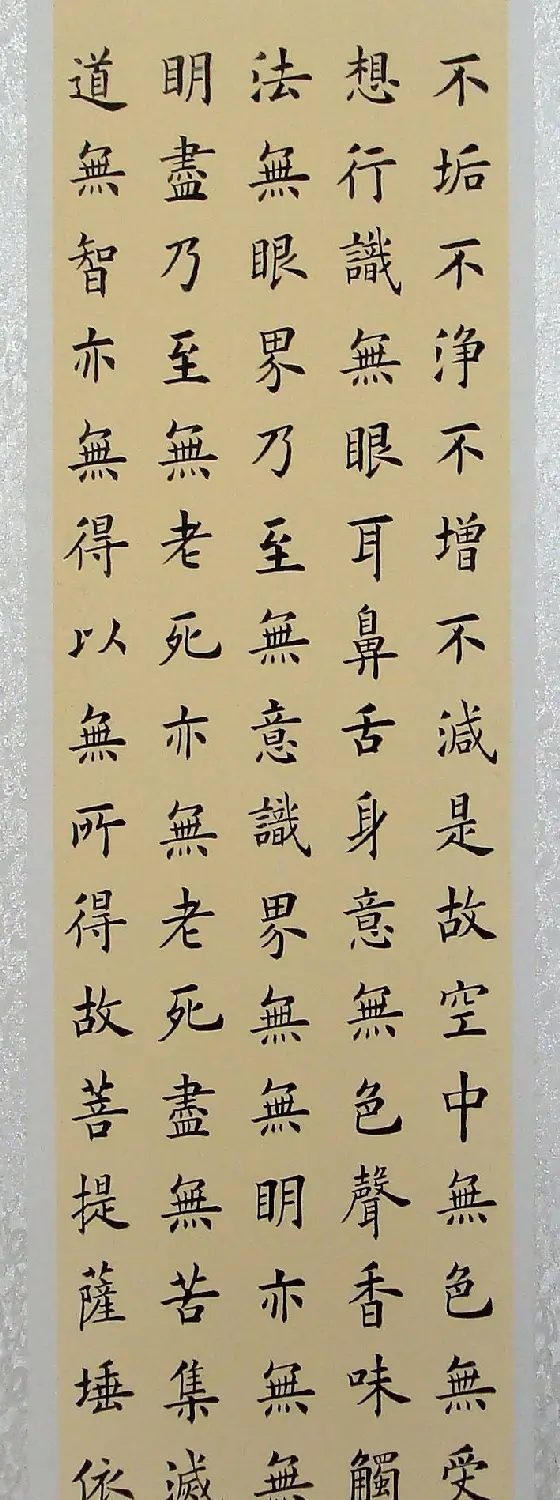 不垢不淨不增不減是故空中無色無受
想行識無眼耳鼻舌身意無色聲香味觸
法無眼界乃至無意識界無無明亦無無
明盡乃至無老死亦無老死盡無苦集滅
道無智亦無得以無所得故菩提薩埵依